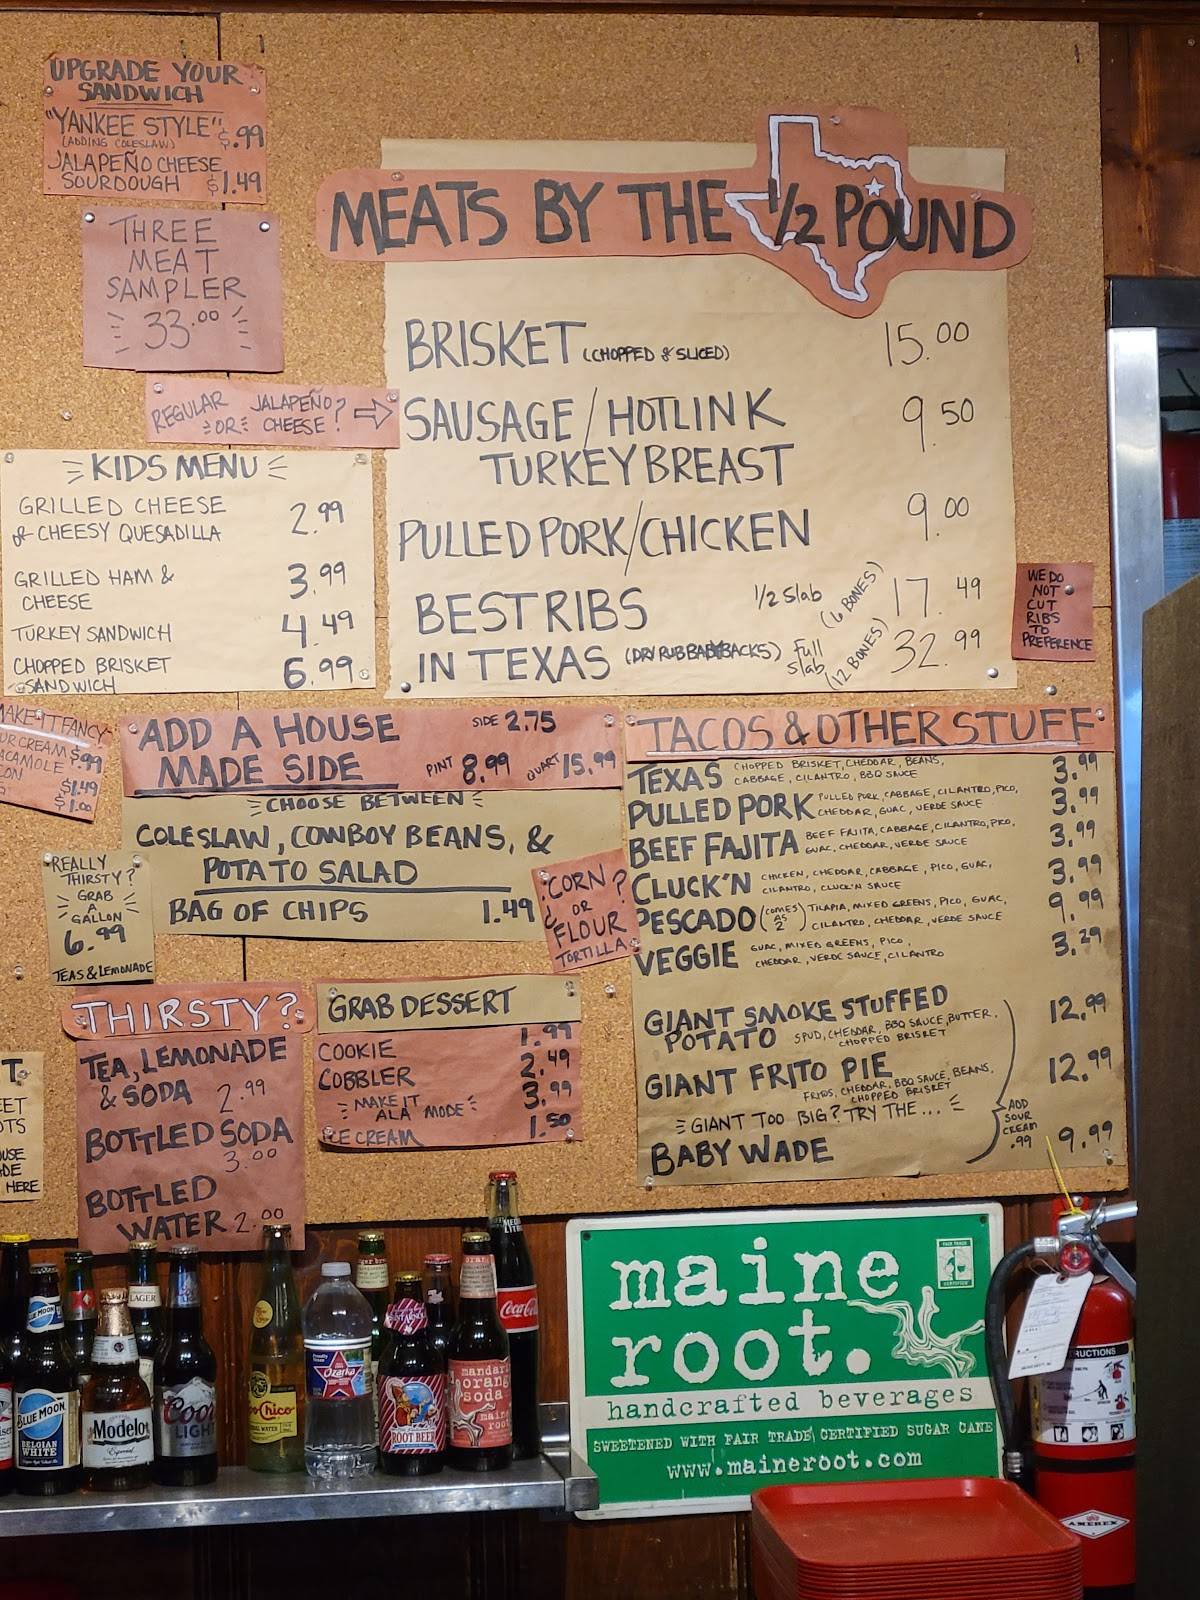 UPGRADE YOUR
SANDWICH
"YANKEE STYLE" $.99
(ADDING COLESLAW)
JALAPEÑO CHEESE
SOURDOUGH $1.49
THREE
MEAT
SAMPLER
33.00
REGULAR OR JALAPEÑO CHEESE?
MEATS BY THE 1/2 POUND
BRISKET (CHOPPED & SLICED) 15.00
SAUSAGE/HOTLINK 9.50
TURKEY BREAST
PULLED PORK/CHICKEN 9.00
BEST RIBS 1/2 Slab (6 BONES) 17.49
IN TEXAS (DRY RUB BABYBACKS) Full Slab (12 BONES) 32.99
WE DO
NOT
CUT
RIBS
TO
PREFERENCE
KIDS MENU
GRILLED CHEESE
or CHEESY QUESADILLA 2.99
GRILLED HAM &
CHEESE 3.99
TURKEY SANDWICH 4.49
CHOPPED BRISKET
SANDWICH 6.99
MAKE IT FANCY
SOUR CREAM $.99
$1.49
$1.00
ADD A HOUSE
MADE SIDE
SIDE 2.75
PINT 8.99 QUART 15.99
CHOOSE BETWEEN
COLESLAW, COWBOY BEANS, &
POTATO SALAD
BAG OF CHIPS 1.49
CORN?
OR
FLOUR
TORTILLA
REALLY
THIRSTY?
GRAB
A
GALLON
6.99
TEAS & LEMONADE
TACOS & OTHER STUFF
TEXAS CHOPPED BRISKET, CHEDDAR, BEANS, 3.99
CABBAGE, CILANTRO, BBQ SAUCE
PULLED PORK PULLED PORK, CABBAGE, CILANTRO, PICO, 3.99
CHEDDAR, GUAC, VERDE SAUCE
BEEF FAJITA BEEF FAJITA, CABBAGE, CILANTRO, PICO, 3.99
GUAC, CHEDDAR, VERDE SAUCE
CLUCK'N CHICKEN, CHEDDAR, CABBAGE, PICO, GUAC, 3.99
CILANTRO, CLUCK'N SAUCE
PESCADO (COMES AS 2) TILAPIA, MIXED GREENS, PICO, GUAC, 9.99
CILANTRO, CHEDDAR, VERDE SAUCE
VEGGIE GUAC, MIXED GREENS, PICO, 3.29
CHEDDAR, VERDE SAUCE, CILANTRO
GIANT SMOKE STUFFED 12.99
POTATO SPUD, CHEDDAR, BBQ SAUCE, BUTTER,
CHOPPED BRISKET
GIANT FRITO PIE 12.99
FRITOS, CHEDDAR, BBQ SAUCE, BEANS,
CHOPPED BRISKET
GIANT TOO BIG? TRY THE...
BABY WADE 9.99
ADD
SOUR
CREAM
.99
THIRSTY?
TEA, LEMONADE
& SODA 2.99
BOTTLED SODA
3.00
BOTTLED
WATER 2.00
GRAB DESSERT
COOKIE 1.99
COBBLER 2.49
MAKE IT
ALA MODE 3.99
ICE CREAM 1.50
HERE
BLUE MOON
BLUE MOON
BELGIAN
WHITE
Modelo
Especial
LAGER
Coors
LIGHT
Topo Chico
Ozarka
ROOT BEER
mandarin
orange
soda
maine
root
Coca-Cola
maine
root.
handcrafted beverages
SWEETENED WITH FAIR TRADE CERTIFIED SUGAR CANE
www.maineroot.com
FAIR TRADE
CERTIFIED
INSTRUCTIONS
AMEREX